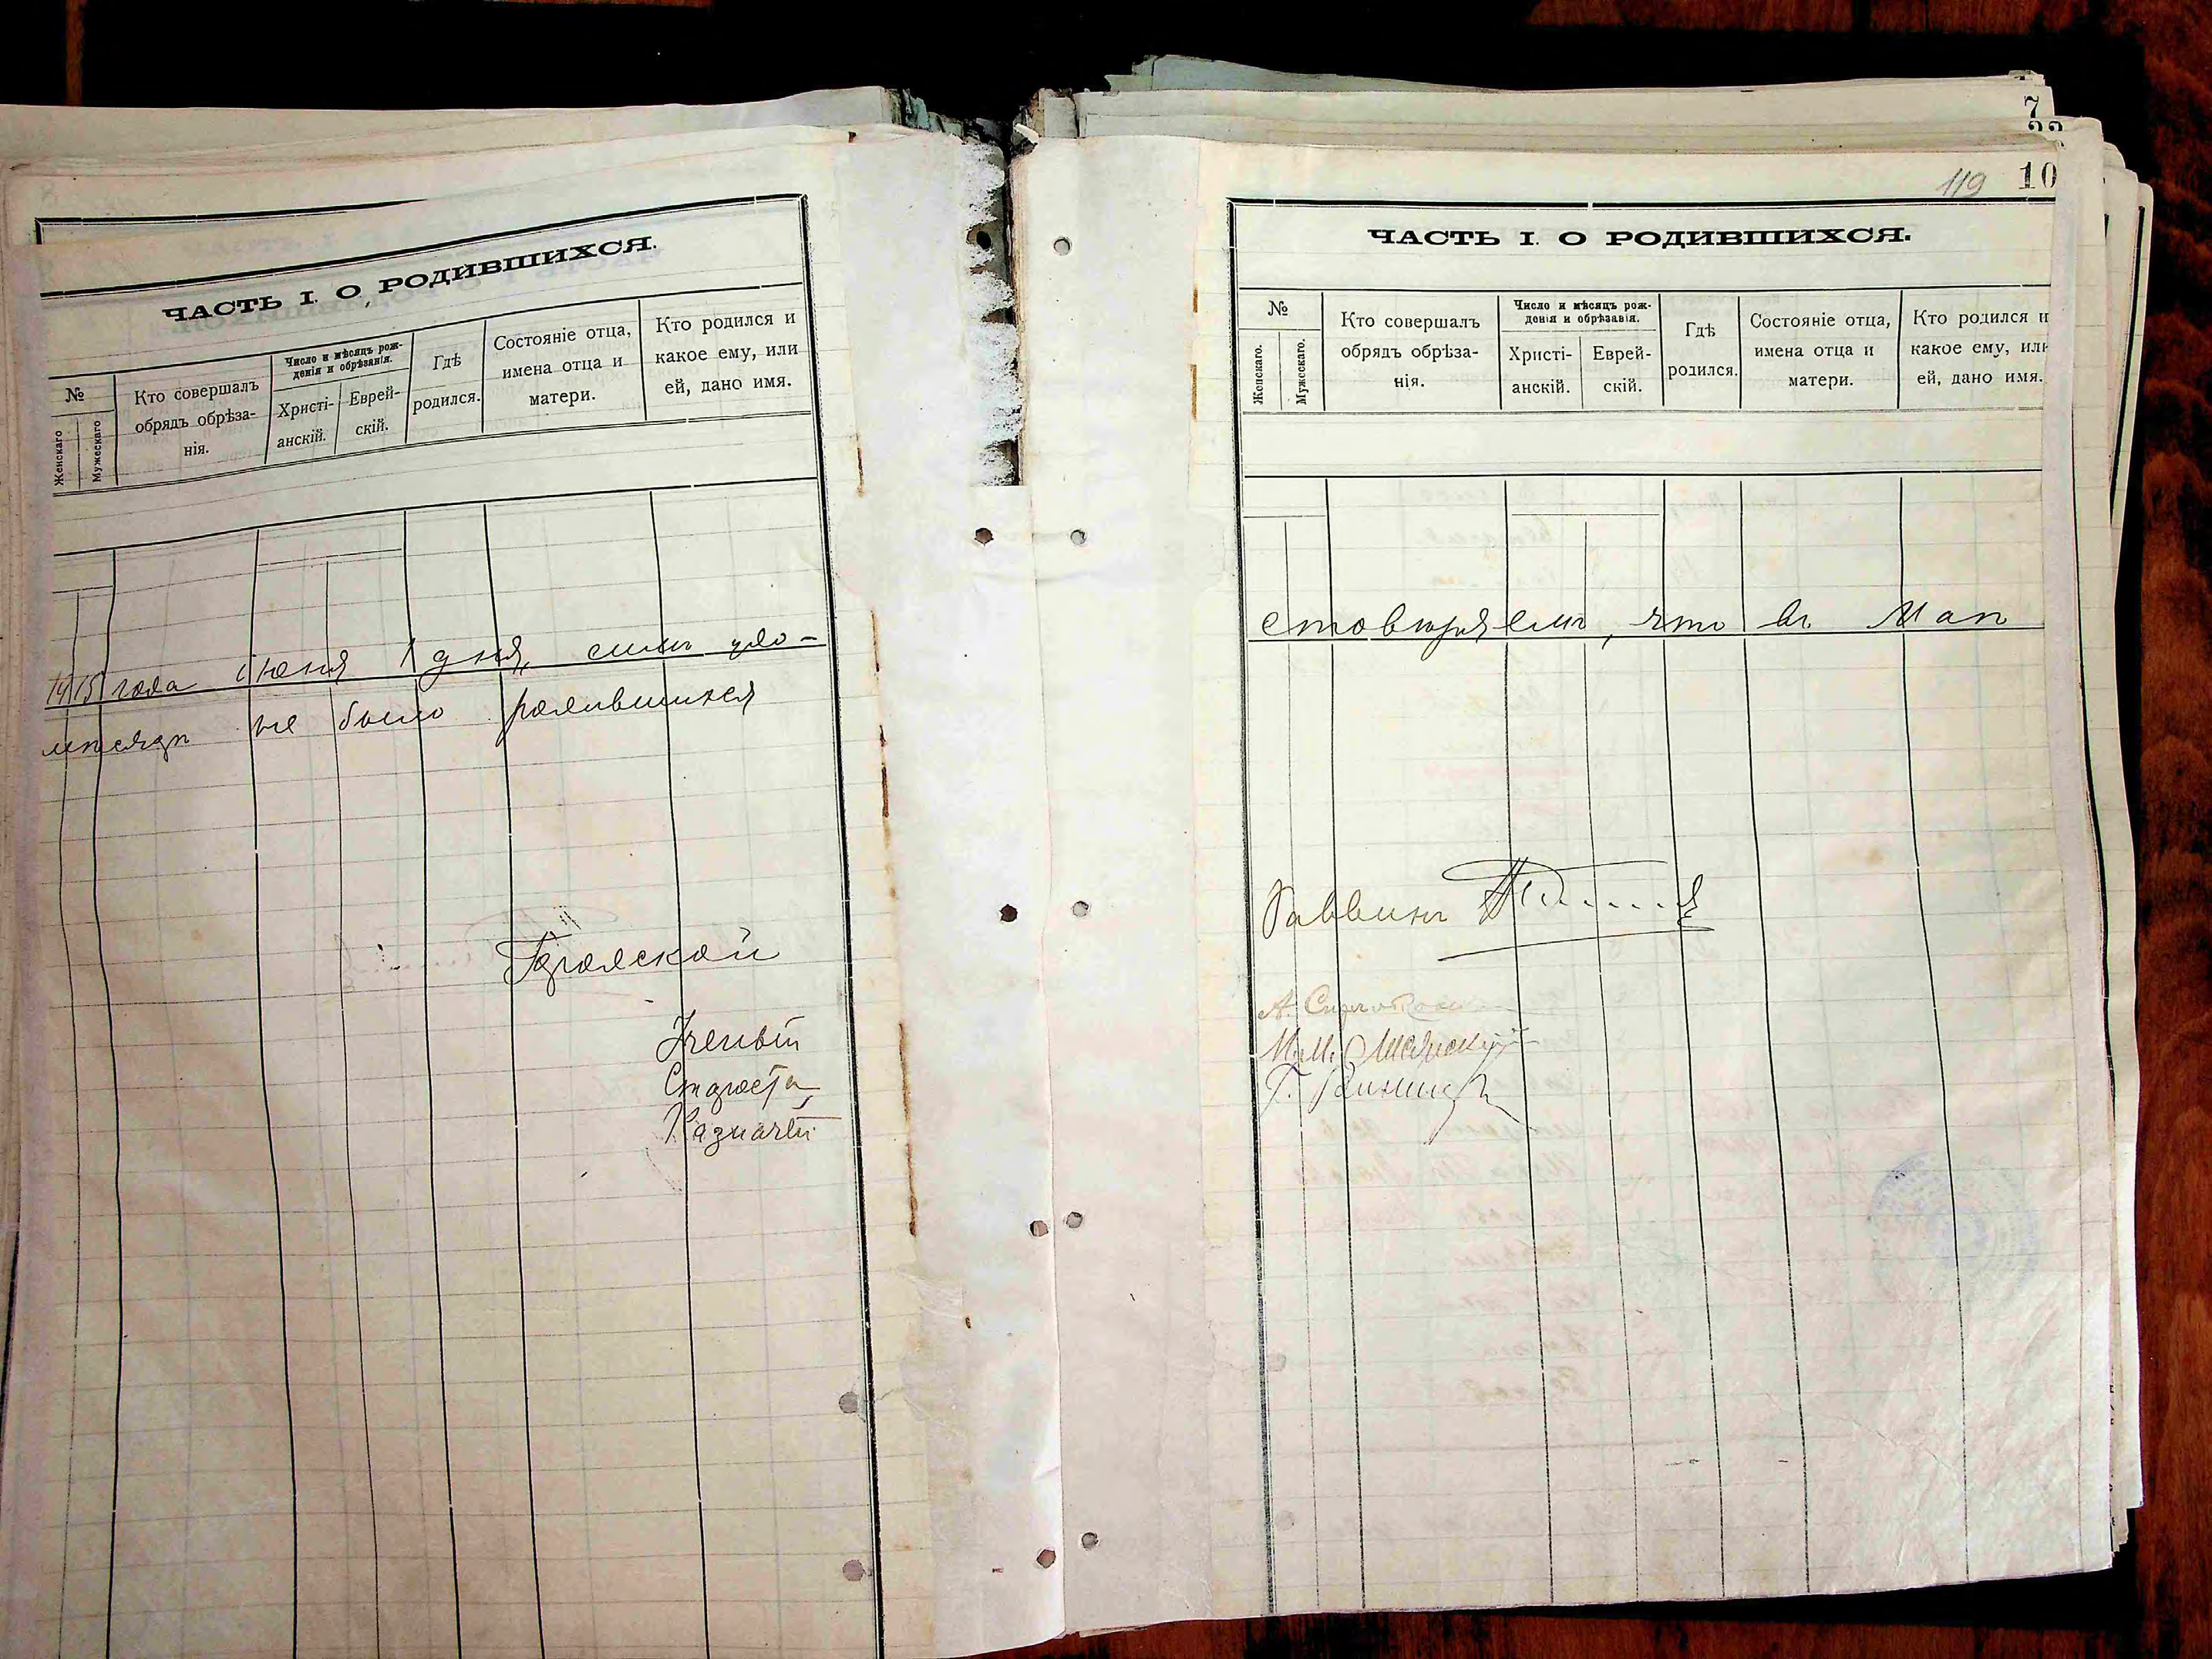 7
119 10
ЧАСТЬ I. О РОДИВШИХСЯ.
№
Женскаго
Мужескаго
Кто совершалъ
обрядъ обрѣза-
нія.
Число и мѣсяцъ рож-
денія и обрѣзанія.
Христі-
анскій.
Еврей-
скій.
Гдѣ
родился.
Состояніе отца,
имена отца и
матери.
Кто родился и
какое ему, или
ей, дано имя.
1915 года Іюня 1 дня, симъ удо-
мѣсяцѣ не было родившихся
Городской
Ученый
Староста
Казначей
ЧАСТЬ I. О РОДИВШИХСЯ.
№
Женскаго.
Мужескаго.
Кто совершалъ
обрядъ обрѣза-
нія.
Число и мѣсяцъ рож-
денія и обрѣзанія.
Христі-
анскій.
Еврей-
скій.
Гдѣ
родился.
Состояніе отца,
имена отца и
матери.
Кто родился и
какое ему, или
ей, дано имя.
стовѣряемъ, что въ Маѣ
Раввинъ
А.
М.М.
Г.